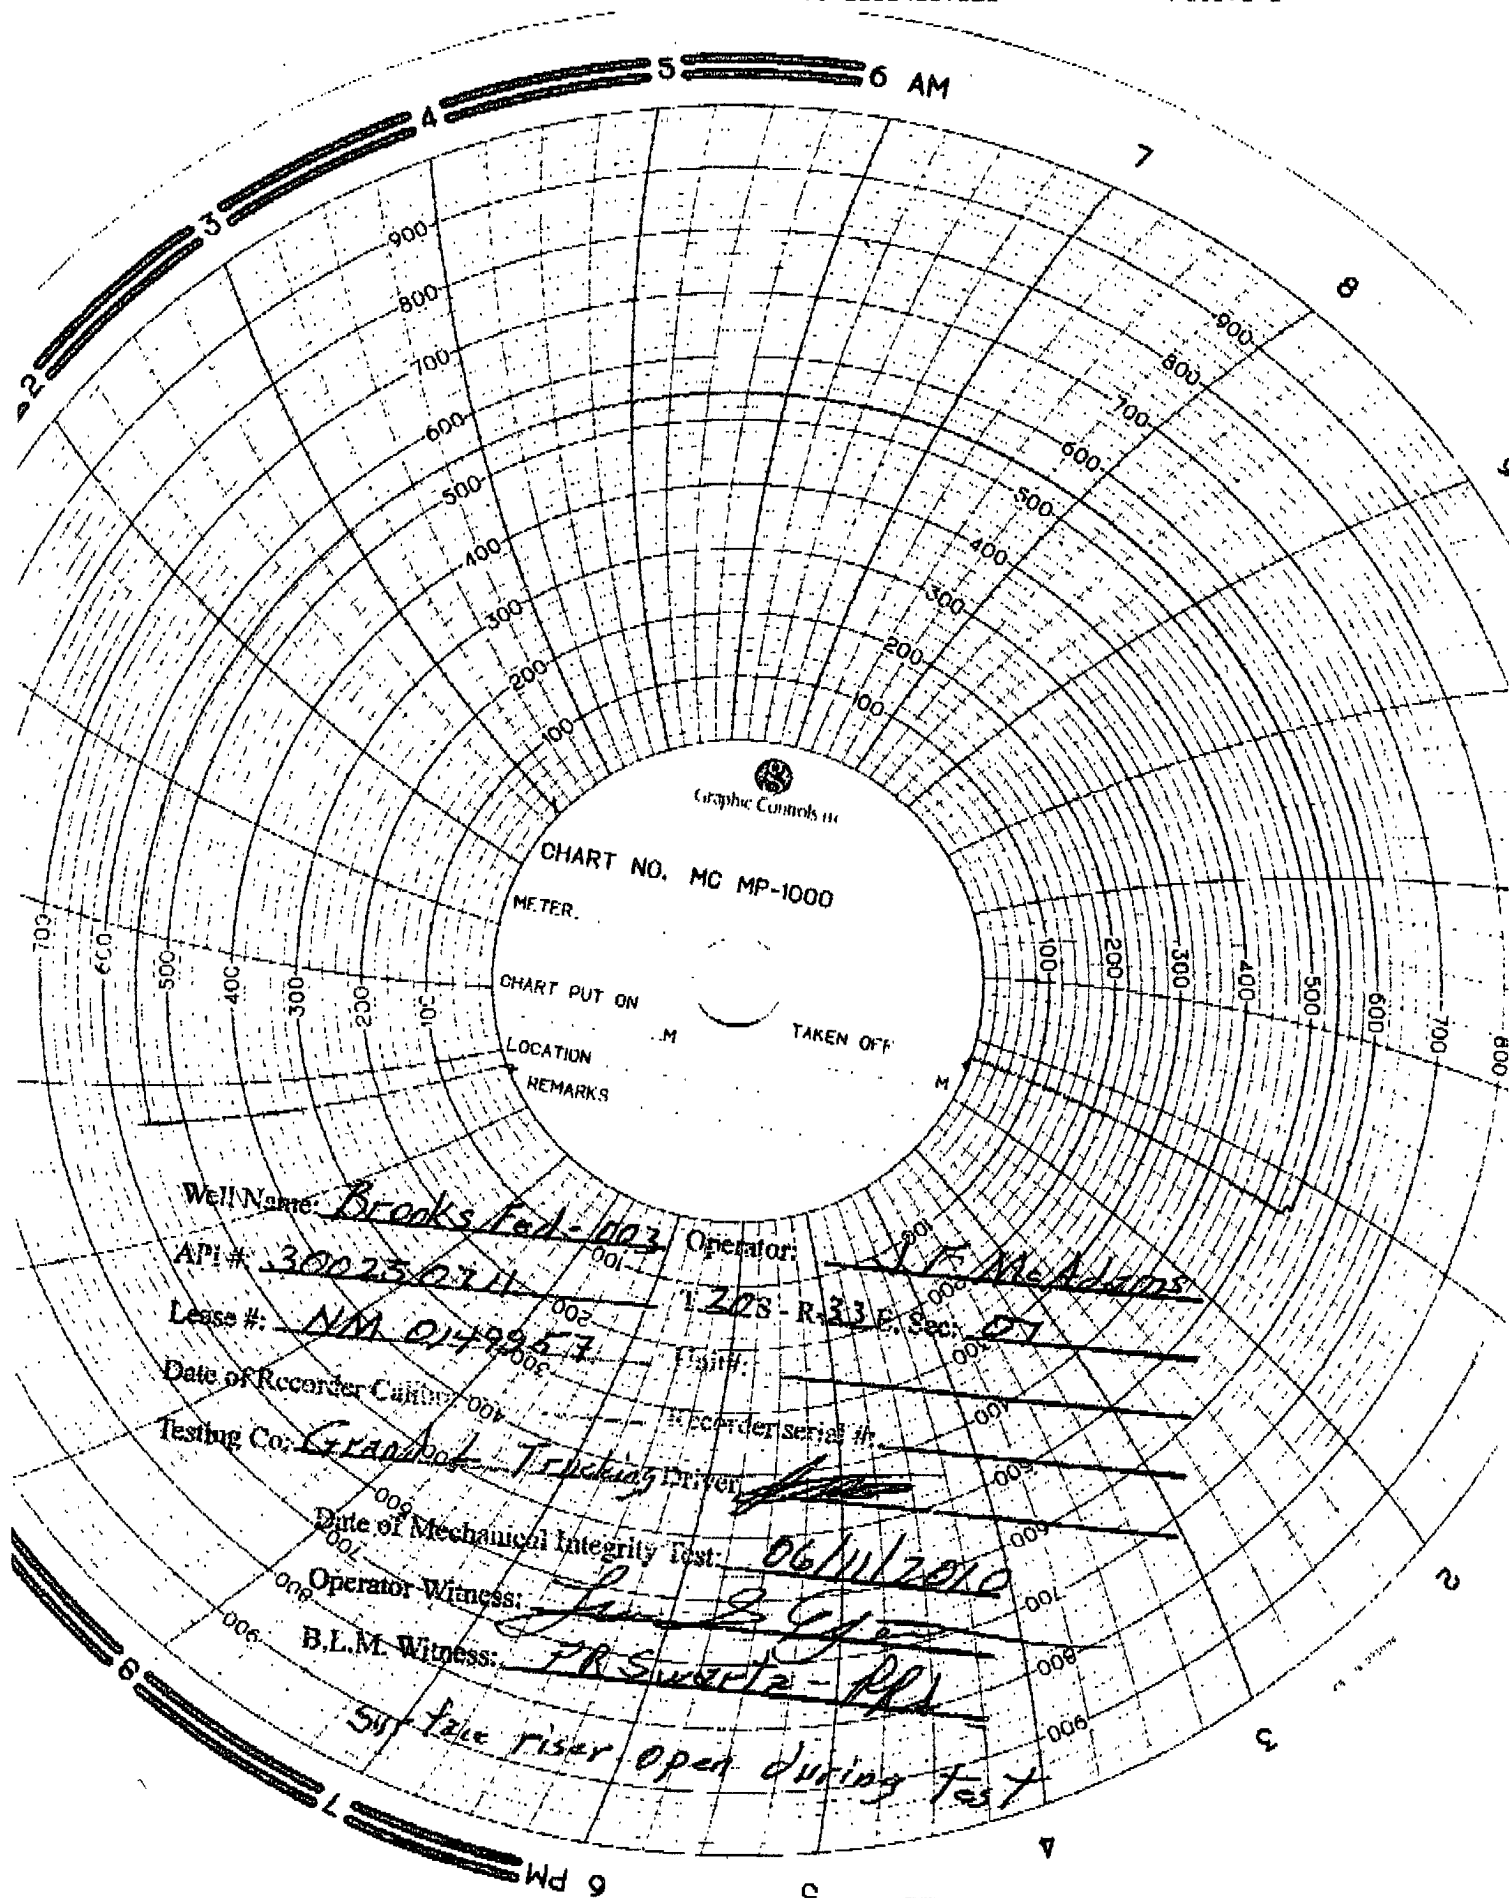 5 6 AM
4
7
3
8
2
900 800 700 600 500 400 300 200 100
900 800 700 600 500 400 300 200 100
700 600 500 400 300 200 100
100 200 300 400 500 600 700 800
Graphic Controls
CHART NO. MC MP-1000
METER.
CHART PUT ON
.M
TAKEN OFF
LOCATION
M
REMARKS
Well Name: Brooks Fed-003 Operator: J F. McAdams
API #: 30025
T 20S - R-33 E. Sec: 07
Lease #: NM 0149957 Unit#:
Date of Recorder Recorder serial #:
Testing Co: Trucking Driver
Date of Mechanical Integrity Test: 06/11/2010
Operator Witness:
B.L.M. Witness: PR Swartz -
Surface riser open during Test
100 200 300 400 600 700 800 900
100 200 300 400 500 600 700 800 900
2
3
4
5
6 PM
7
8